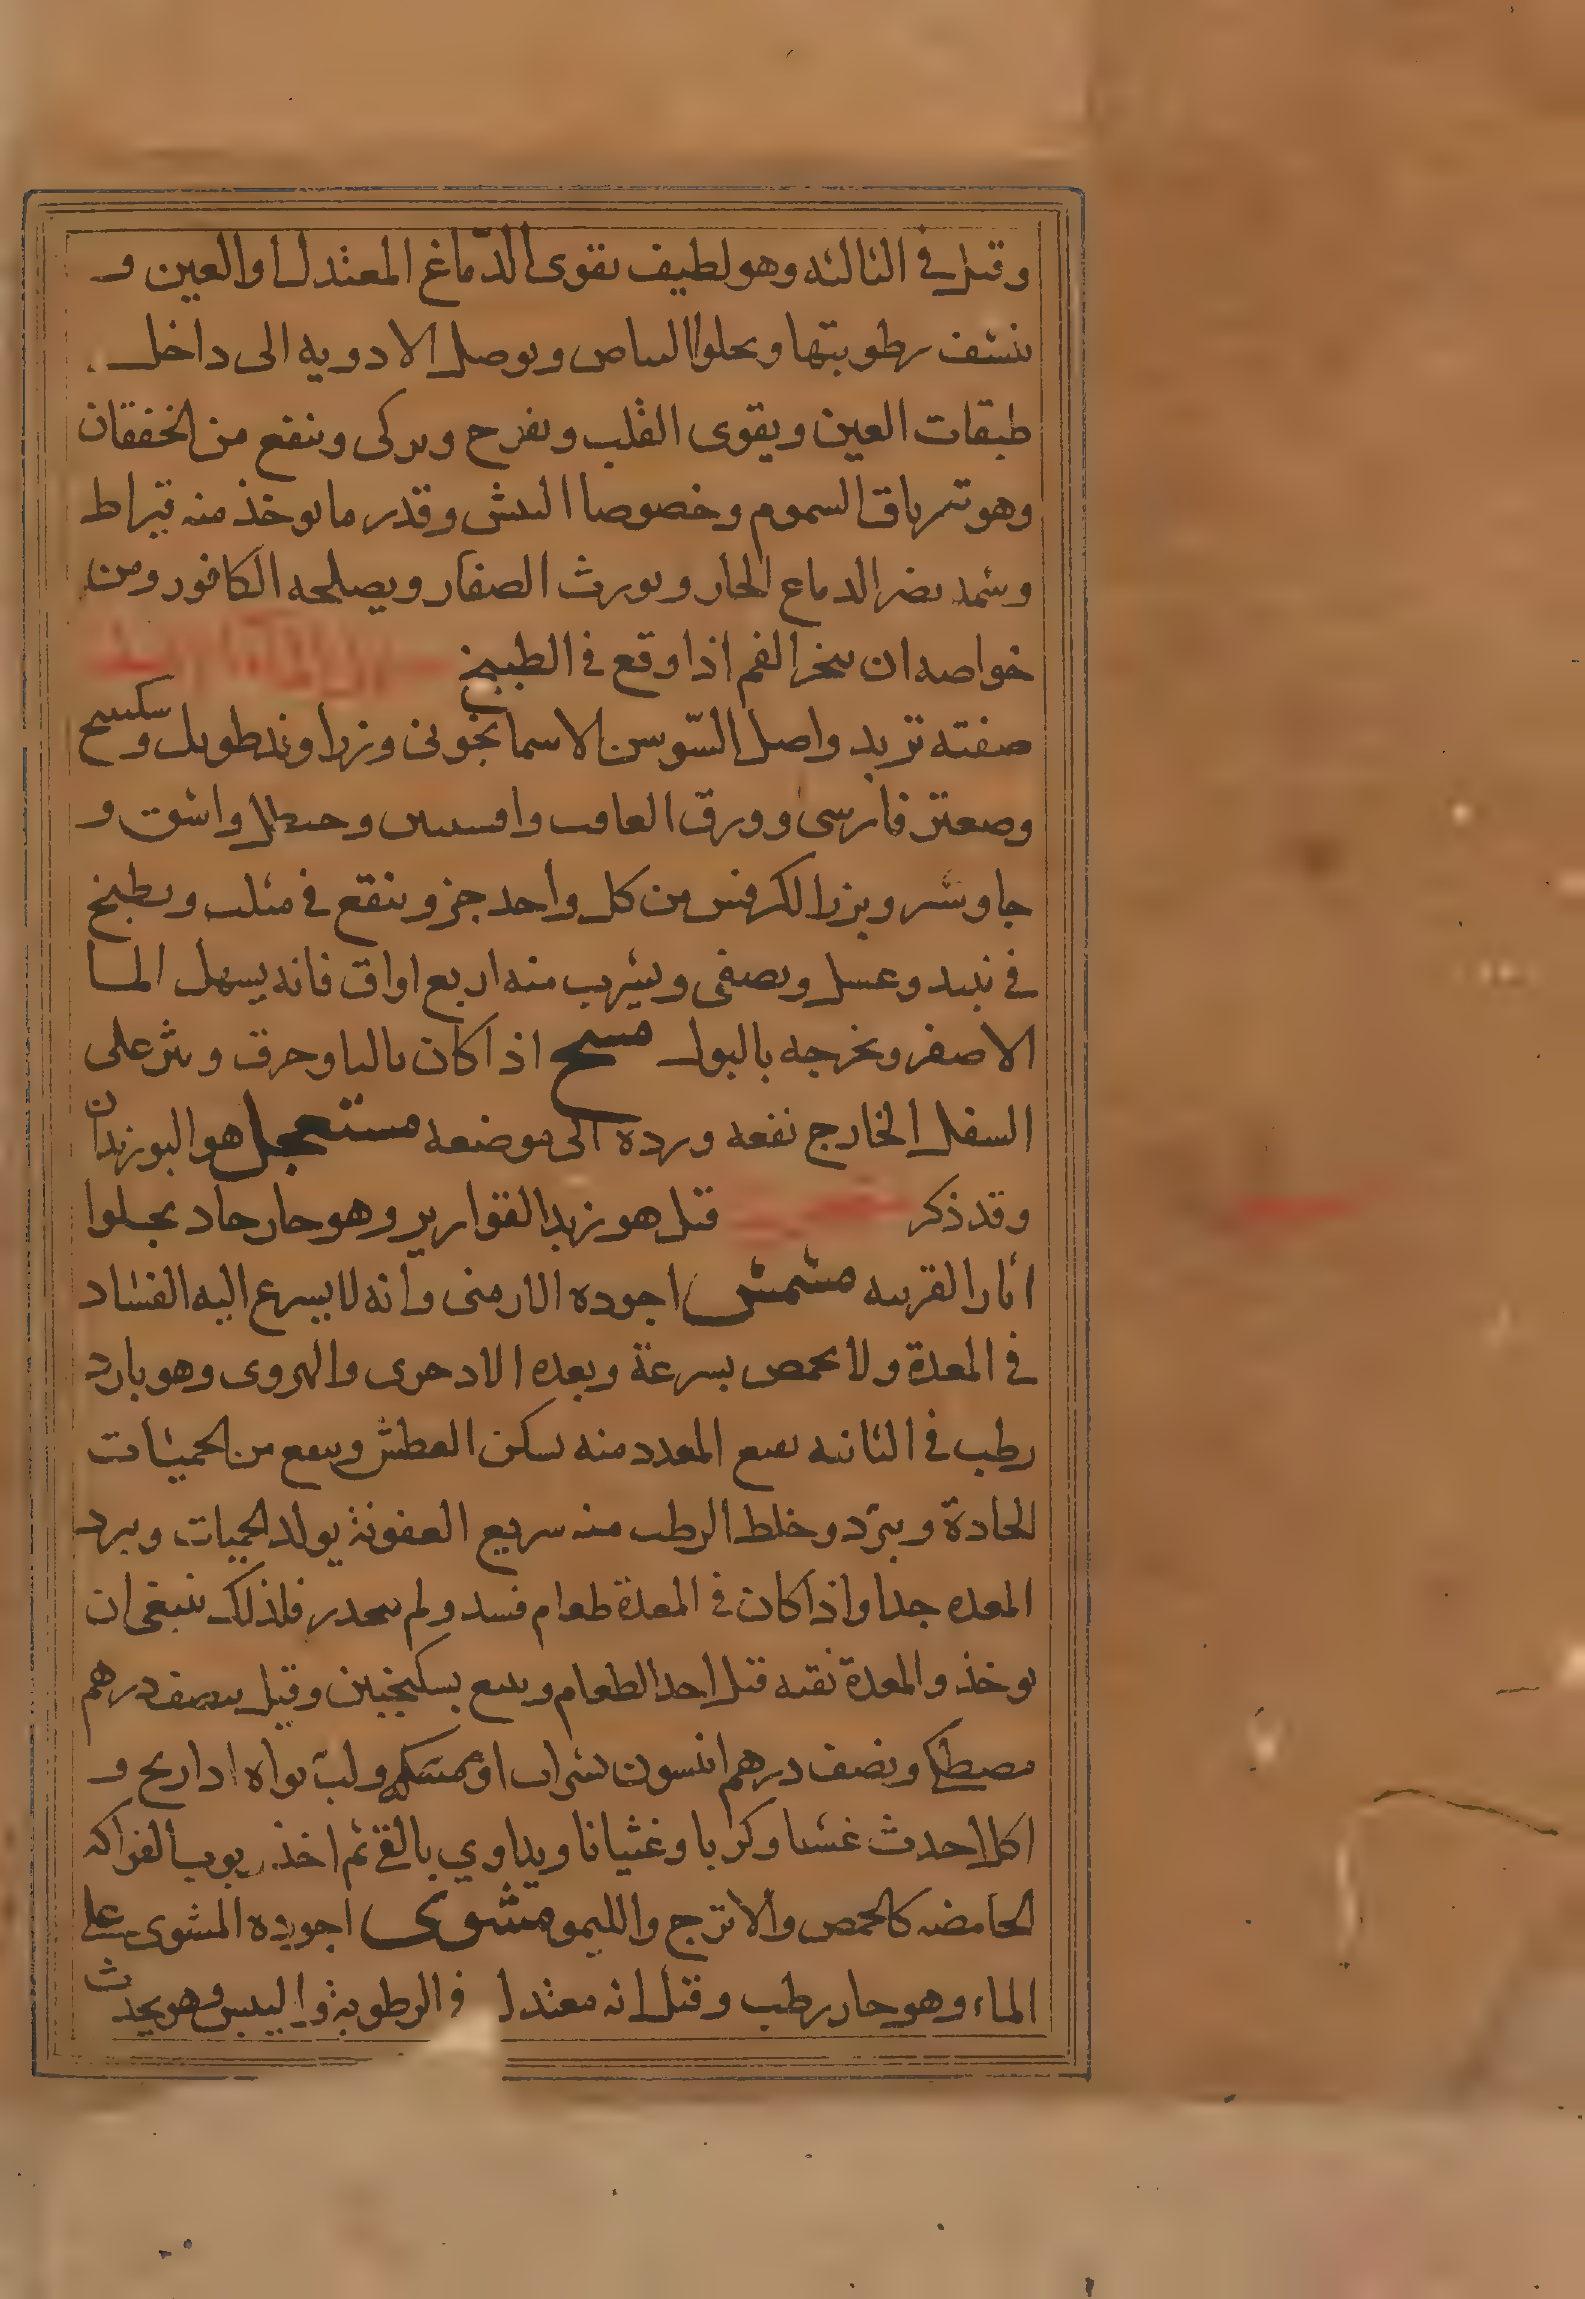 وقيل في الثالثه وهو لطيف يقوى الدّماغ المعتدل والعين و
ينشف رطوبتها ويجلوا البياض ويوصل الادويه الى داخل
طبقات العين ويقوى القلب ويفرح ويزكى وينفع من الخفقان
وهو ترياق السموم وخصوصا البيش وقدر ما يوخذ منه قيراط
وشمه يضر الدماغ الحار ويورث الصفار ويصلحه الكافور ومن
خواصه ان يبخر الفم اذا وقع في الطبيخ
صفته تربد واصل السّوسن الاسمانجونى وزراوند طويل وسكبينج
وصعتر فارسى وورق الغافت وافسنتين وحنظل واشق و
جاوشير وبزر الكرفس من كل واحد جزو ينقع في مثلث ويطبخ
في نبيد وعسل ويصفى ويشرب منه اربع اواق فانه يسهل الما
الاصفر ويخرجه بالبول مسح اذا كان باليا وحرق ونثر على
السفل الخارج نفعه ورده الى موضعه مستعجل هو البوزيدان
وقد ذكر قيل هو زبد القوارير وهو حار حاد يجلوا
اثار القرنيه مشمش اجوده الارمنى وانه لا يسرع اليه الفساد
في المعدة ولا يحمص بسرعة وبعده الادحرى والهروى وهو بارد
رطب في الثانيه نقيع المقدد منه يسكن العطش وينفع من الحميات
الحادة ويبرّد وخلط الرطب منه سريع العفونة يولد الحميات ويبرد
المعده جدا واذا كان في المعدة طعام فسد ولم ينحدر فلذلك ينبغى ان
يوخذ والمعدة نقيه قبل اخد الطعام ويتبع بسكنجبين وقيل بنصف درهم
مصطكا ونصف درهم انيسون بشراب او ولب نواه اذا زنخ و
اكل احدث غشيا وكربا وغثيانا ويداوي بالقئ ثم اخذ ربوب الفواكه
الحامضه كالحمص والاترج والليمو مشوى اجوده المشوى على
الماء وهو حار رطب وقيل انه معتدل في الرطوبة واليبس وهو يحدث